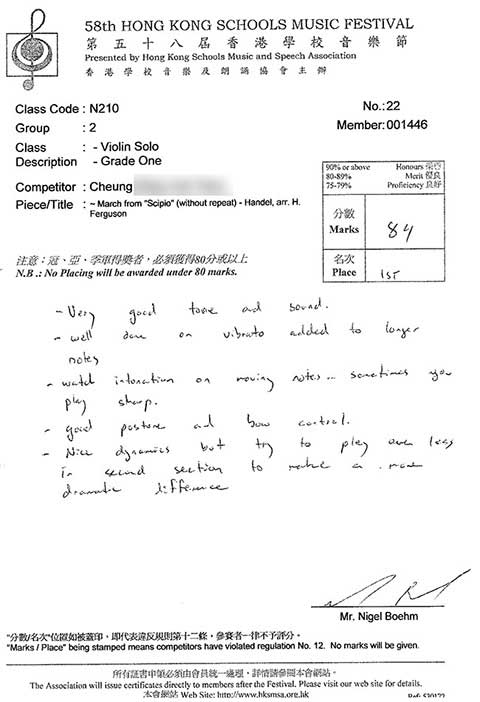 58th HONG KONG SCHOOLS MUSIC FESTIVAL
第五十八屆香港學校音樂節
Presented by Hong Kong Schools Music and Speech Association
香港學校音樂及朗誦協會主辦
Class Code : N210
No.:22
Group : 2
Member:001446
Class : - Violin Solo
Description - Grade One
Competitor : Cheung
Piece/Title : ~ March from "Scipio" (without repeat) - Handel, arr. H.
Ferguson
90% or above Honours 榮譽
80-89% Merit 優良
75-79% Proficiency 良好
分數
Marks 84
名次
Place 1st
注意：冠、亞、季軍得獎者，必須獲得80分或以上
N.B .: No Placing will be awarded under 80 marks.
- Very good tone and sound.
- well done on vibrato added to longer
notes
- watch intonation on moving notes... sometimes you
play sharp.
- good posture and bow control.
- Nice dynamics but try to play even less
in second section to make a more
dramatic difference
Mr. Nigel Boehm
"分數/名次"位置如被蓋印，即代表違反規則第十二條，參賽者一律不予評分。
"Marks / Place" being stamped means competitors have violated regulation No. 12. No marks will be given.
所有証書申領必須由會員統一處理，詳情請參閱本會網站。
The Association will issue certificates directly to members after the Festival. Please visit our web site for details.
本會網站 Web Site: http://www.hksmsa.org.hk